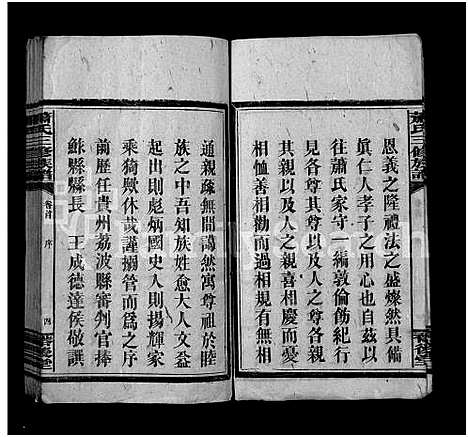 蕭氏三修族譜
恩義之隆禮法之盛燦然具備
眞仁人孝子之用心也自茲以
往蕭氏家守一編敦倫飭紀行
其尊以及人之尊各親
其親以及人之親喜相慶而憂
相恤善相勸而過相規有無相
通親疎無間藹然寓尊祖於睦
族之中吾知族姓愈大人文益
起出則彪炳國史入則揚輝家
乘猗歟休哉謹搦管而爲之序
前歷任貴州荔波縣審判官捧
鮇縣縣長 王成德達侯敬譔
蕭氏三修族譜
卷首 序 四